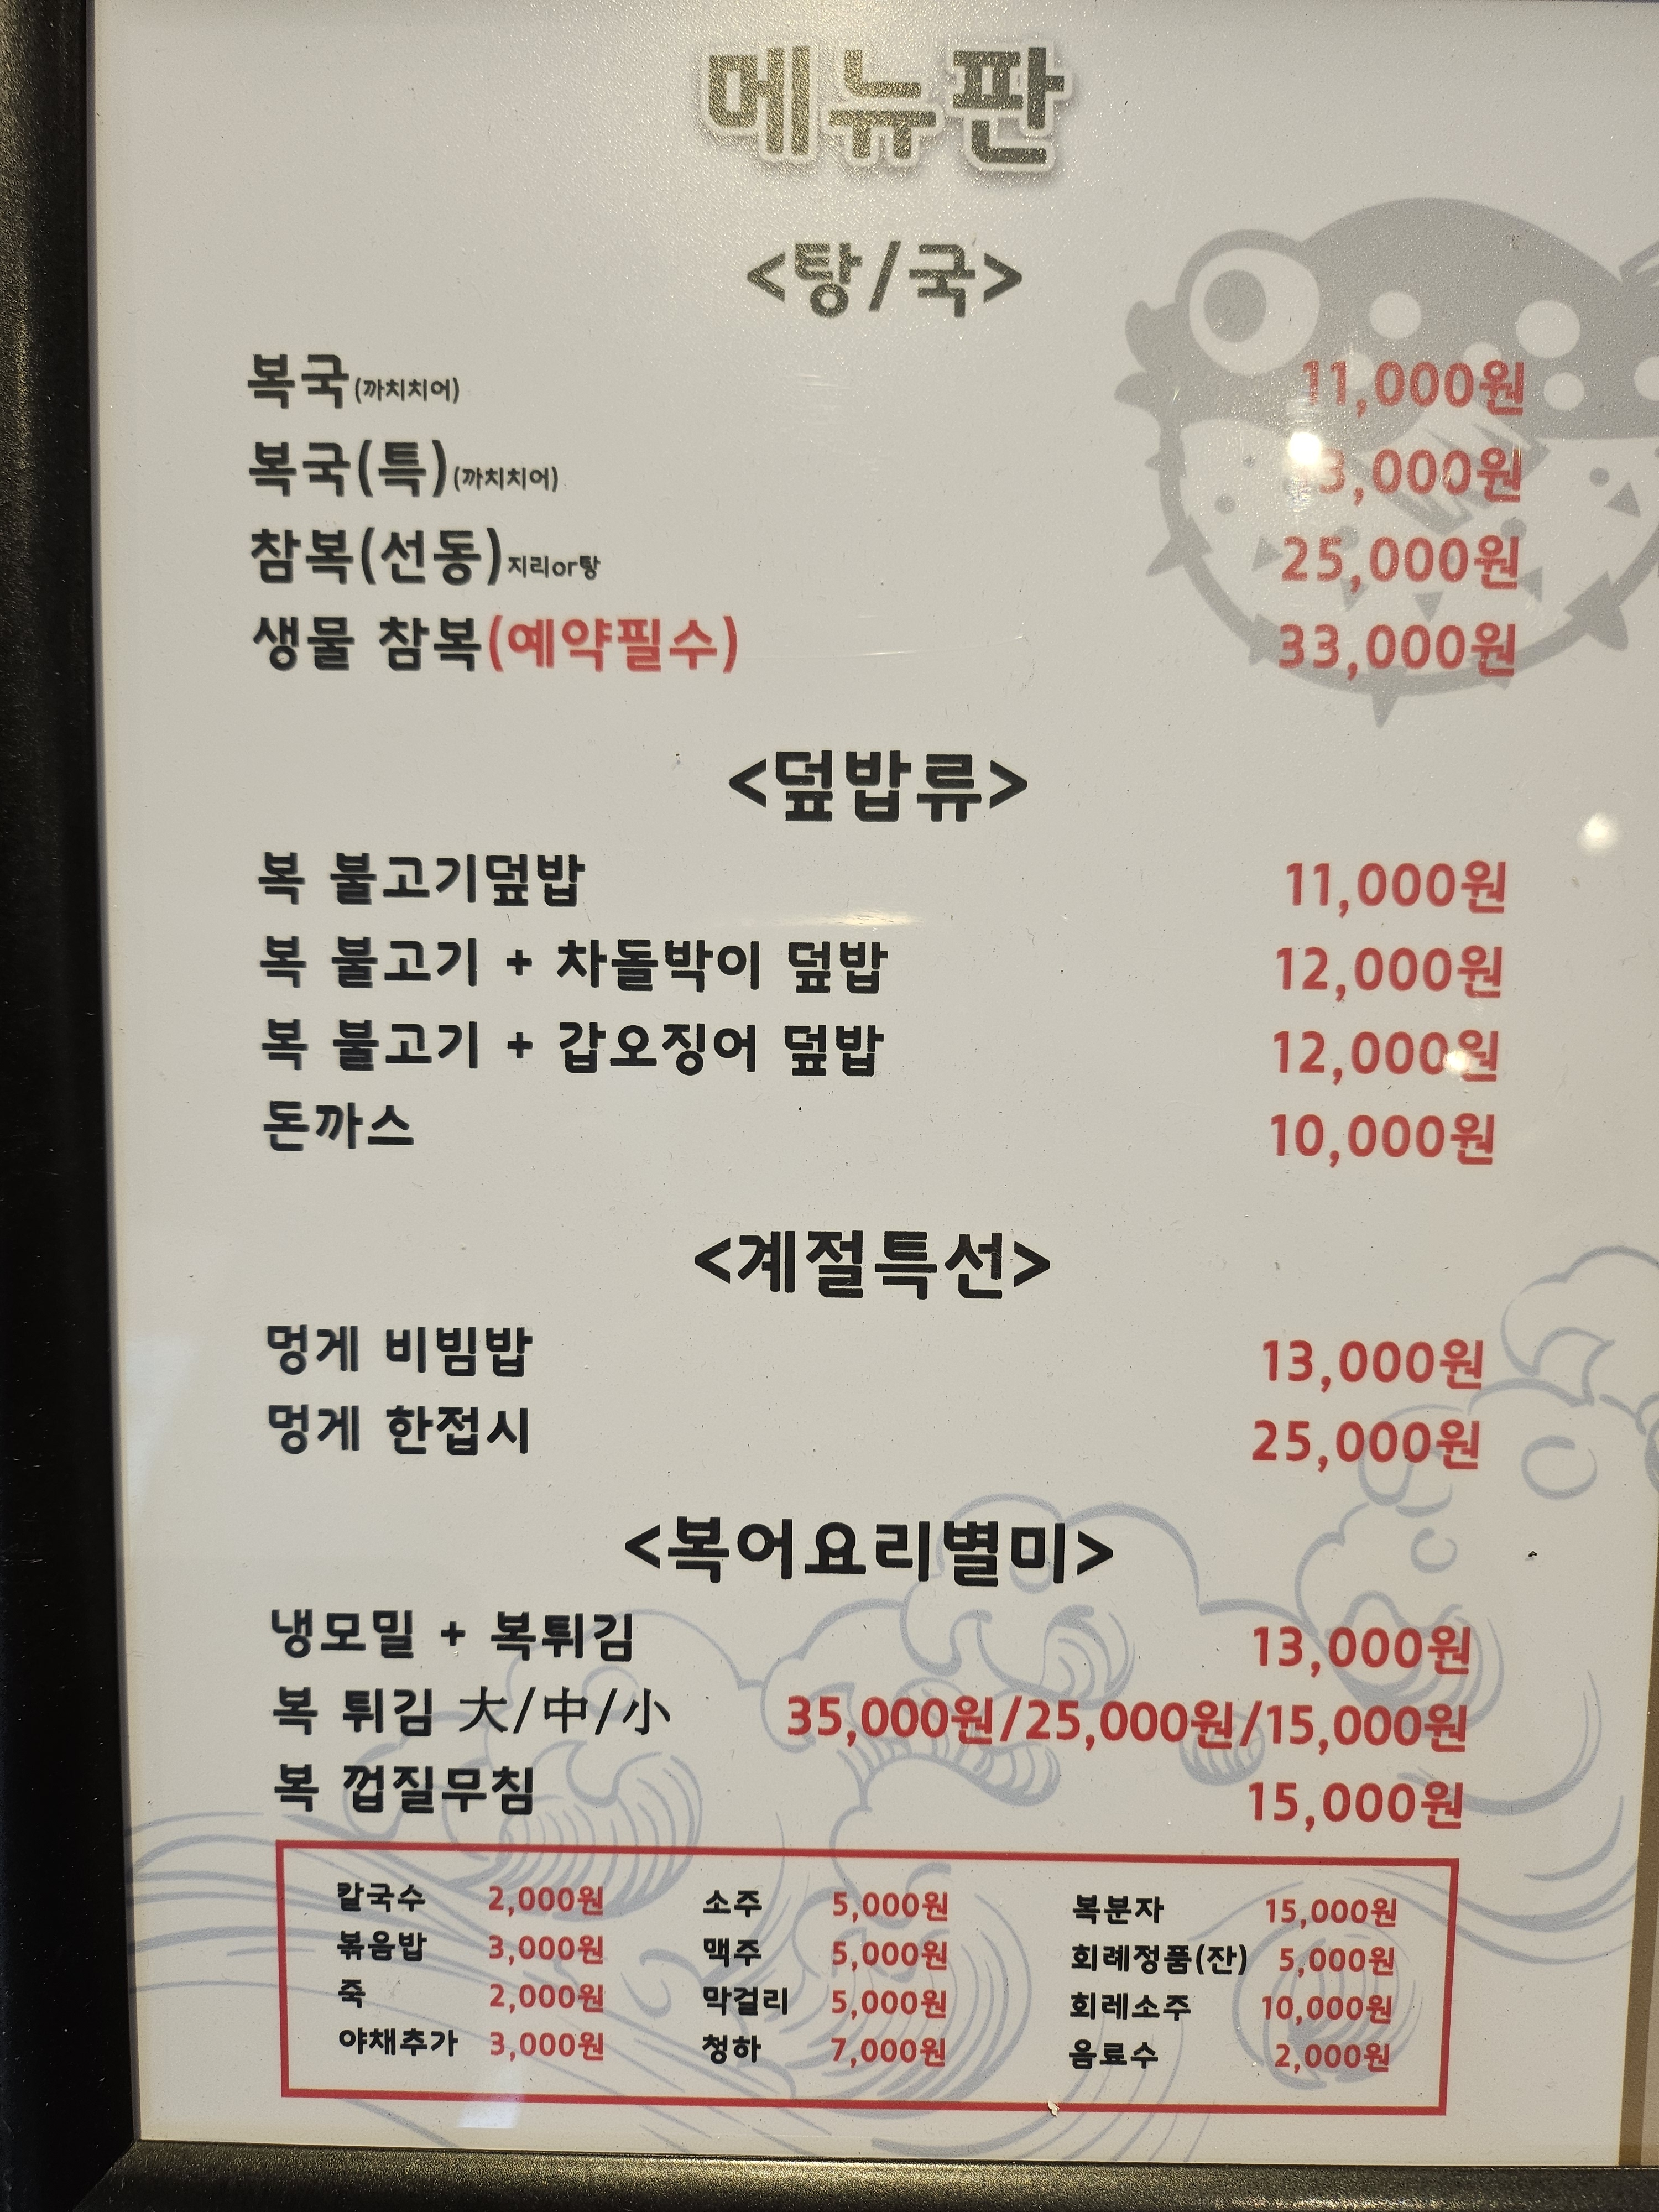 메뉴판
<탕/국>
복국(까치치어) 11,000원
복국(특)(까치치어) 3,000원
참복(선동)지리or탕 25,000원
생물 참복(예약필수) 33,000원
<덮밥류>
복 불고기덮밥 11,000원
복 불고기 + 차돌박이 덮밥 12,000원
복 불고기 + 갑오징어 덮밥 12,000원
돈까스 10,000원
<계절특선>
멍게 비빔밥 13,000원
멍게 한접시 25,000원
<복어요리별미>
냉모밀 + 복튀김 13,000원
복 튀김 大/中/小 35,000원/25,000원/15,000원
복 껍질무침 15,000원
칼국수 2,000원 소주 5,000원 복분자 15,000원
볶음밥 3,000원 맥주 5,000원 회례정품(잔) 5,000원
죽 2,000원 막걸리 5,000원 회레소주 10,000원
야채추가 3,000원 청하 7,000원 음료수 2,000원